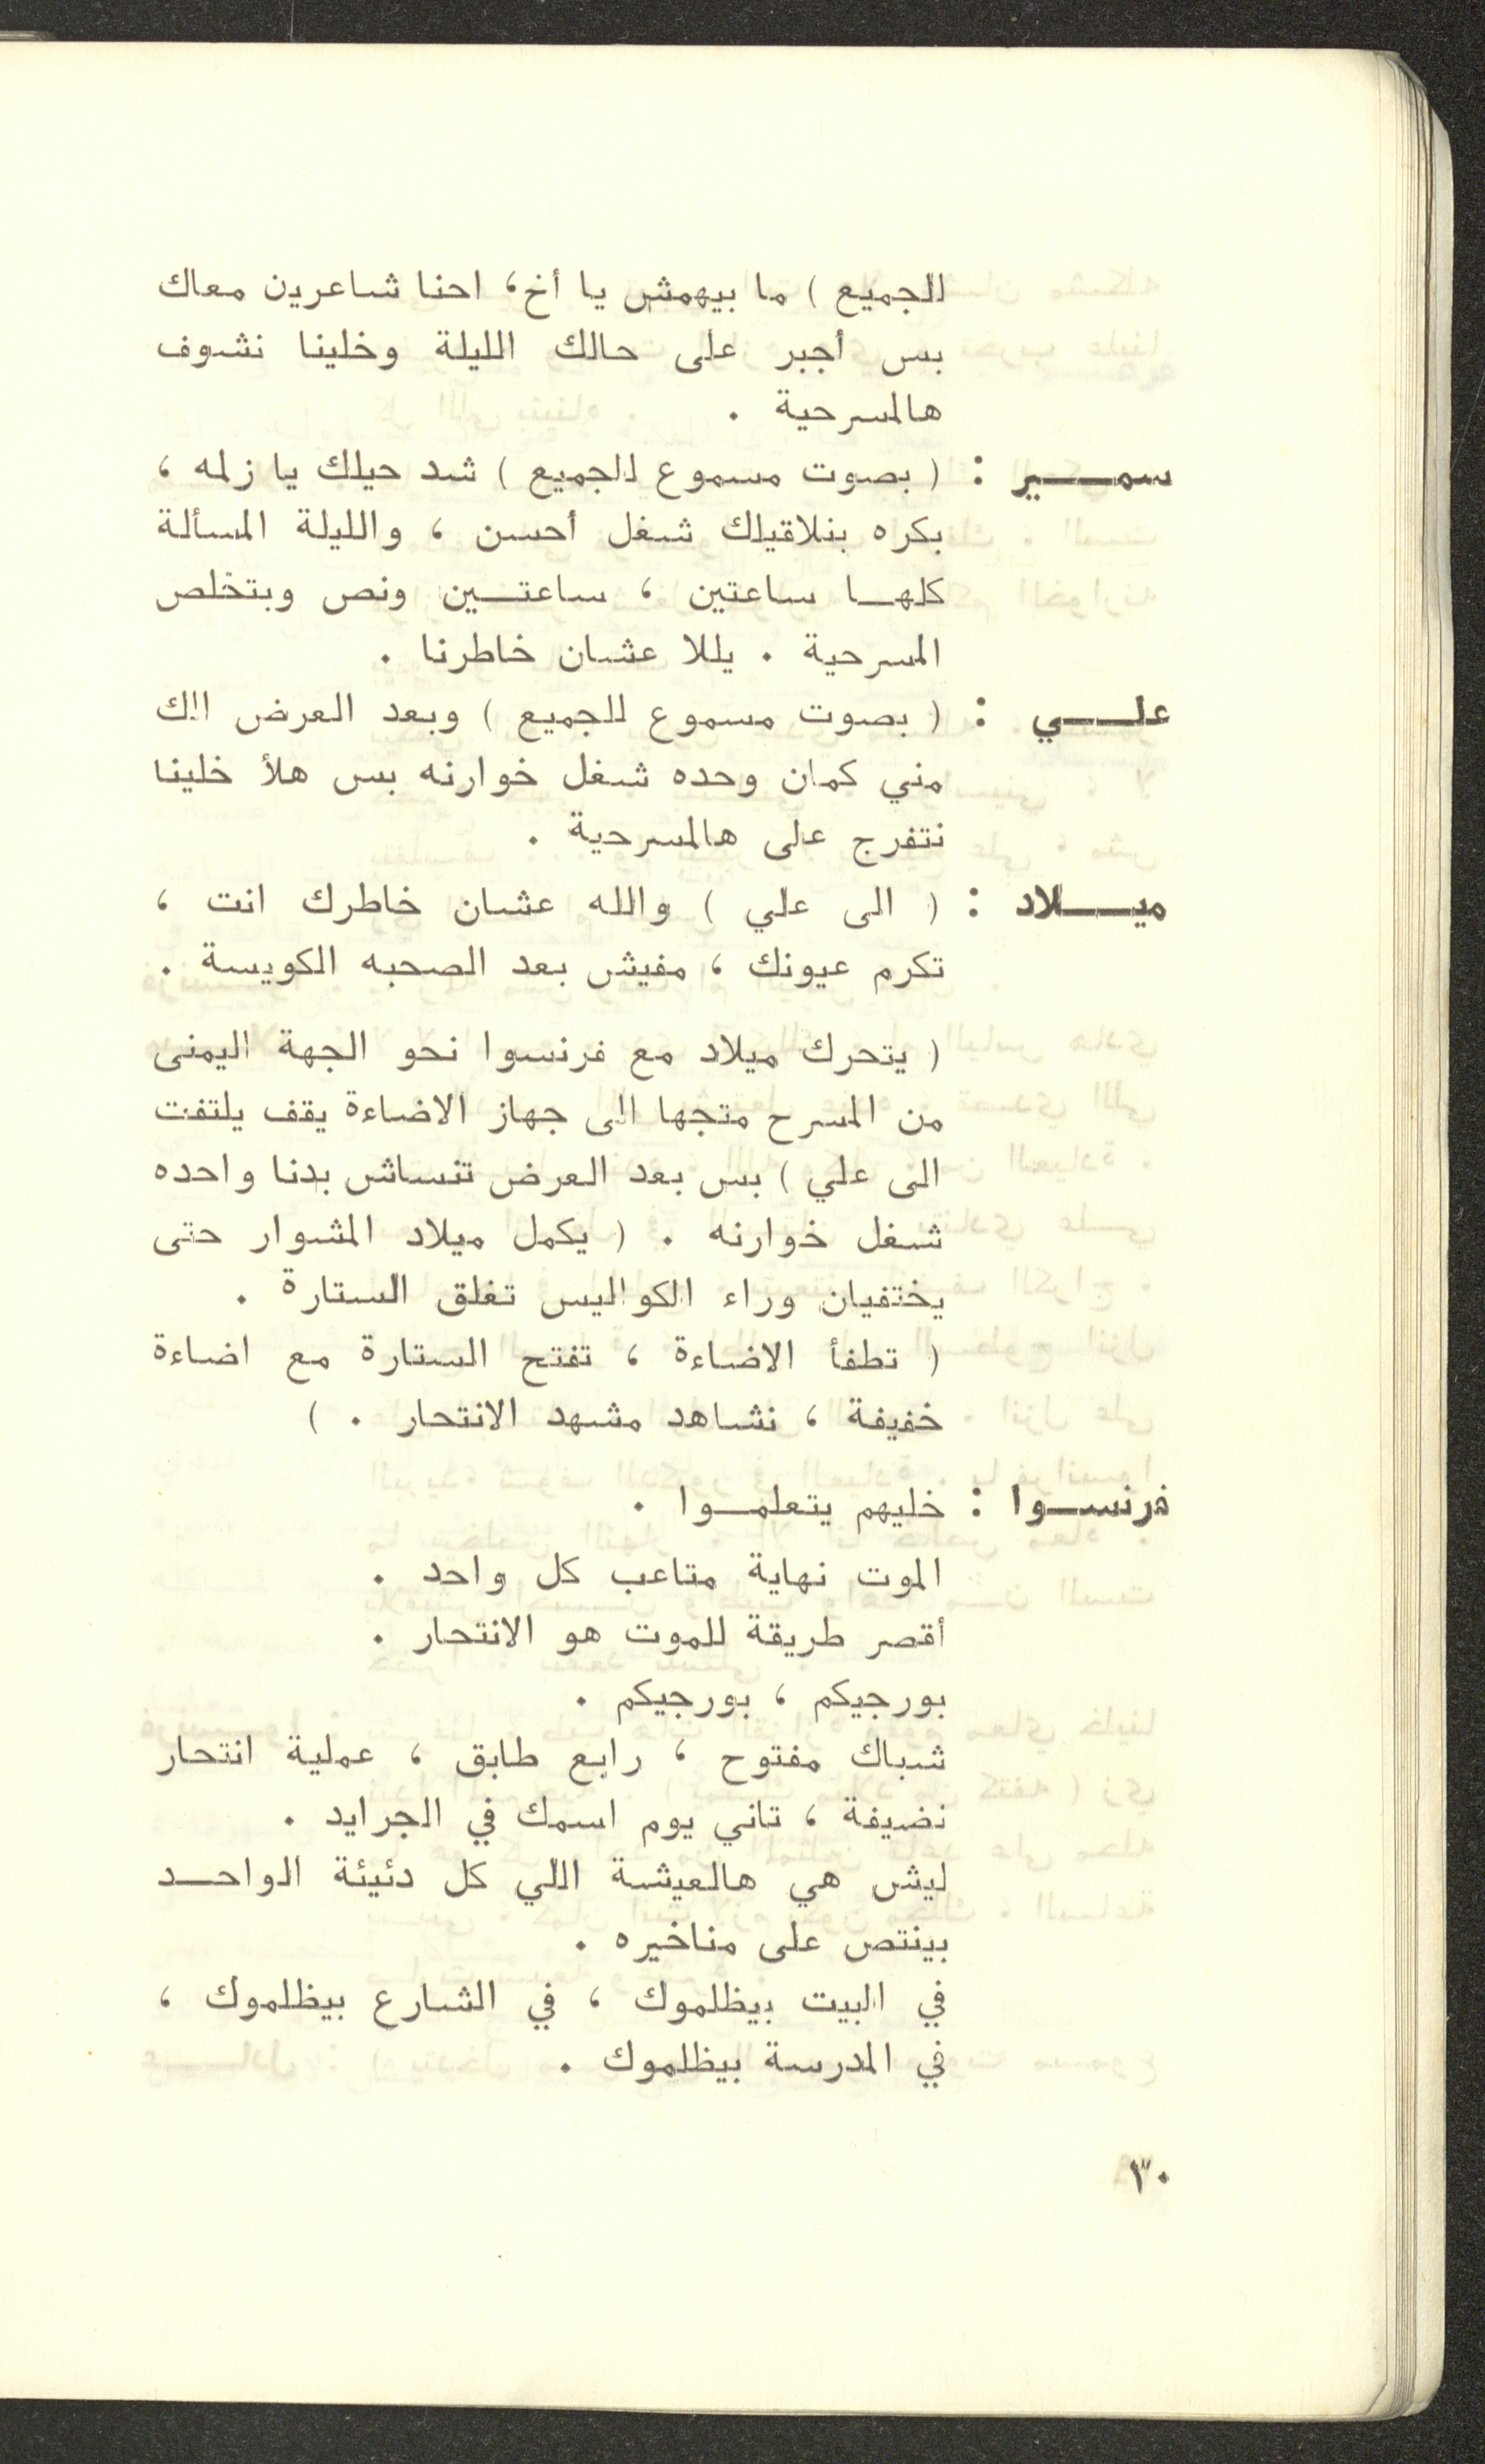 للجميع ) ما بيهمش يا أخ ، احنا شاعرين معاك
بس أجبر على حالك الليلة وخلينا نشوف
هالمسرحية .
سمير : ( بصوت مسموع للجميع ) شد حيلك يا زلمه ،
بكره بنلاقيلك شغل أحسن ، والليلة المسألة
كلها ساعتين ، ساعتين ونص وبتخلص
المسرحية . يللا عشان خاطرنا .
علي : ( بصوت مسموع للجميع ) وبعد العرض الك
مني كمان وحده شغل خوارنه بس هلأ خلينا
نتفرج على هالمسرحية .
ميلاد : ( الى علي ) والله عشان خاطرك انت ،
تكرم عيونك ، مفيش بعد الصحبه الكويسة .
( يتحرك ميلاد مع فرنسوا نحو الجهة اليمنى
من المسرح متجها الى جهاز الاضاءة يقف يلتفت
الى علي ) بس بعد العرض تنساش بدنا واحده
شغل خوارنه . ( يكمل ميلاد المشوار حتى
يختفيان وراء الكواليس تغلق الستارة .
( تطفأ الاضاءة ، تفتح الستارة مع اضاءة
خفيفة ، نشاهد مشهد الانتحار . )
فرنسوا : خليهم يتعلموا .
الموت نهاية متاعب كل واحد .
أقصر طريقة للموت هو الانتحار .
بورجيكم ، بورجيكم .
شباك مفتوح ، رابع طابق ، عملية انتحار
نضيفة ، تاني يوم اسمك في الجرايد .
ليش هي هالعيشة اللي كل دئيئة الواحد
بينتص على مناخيره .
في البيت بيظلموك ، في الشارع بيظلموك ،
في المدرسة بيظلموك .
٣٠